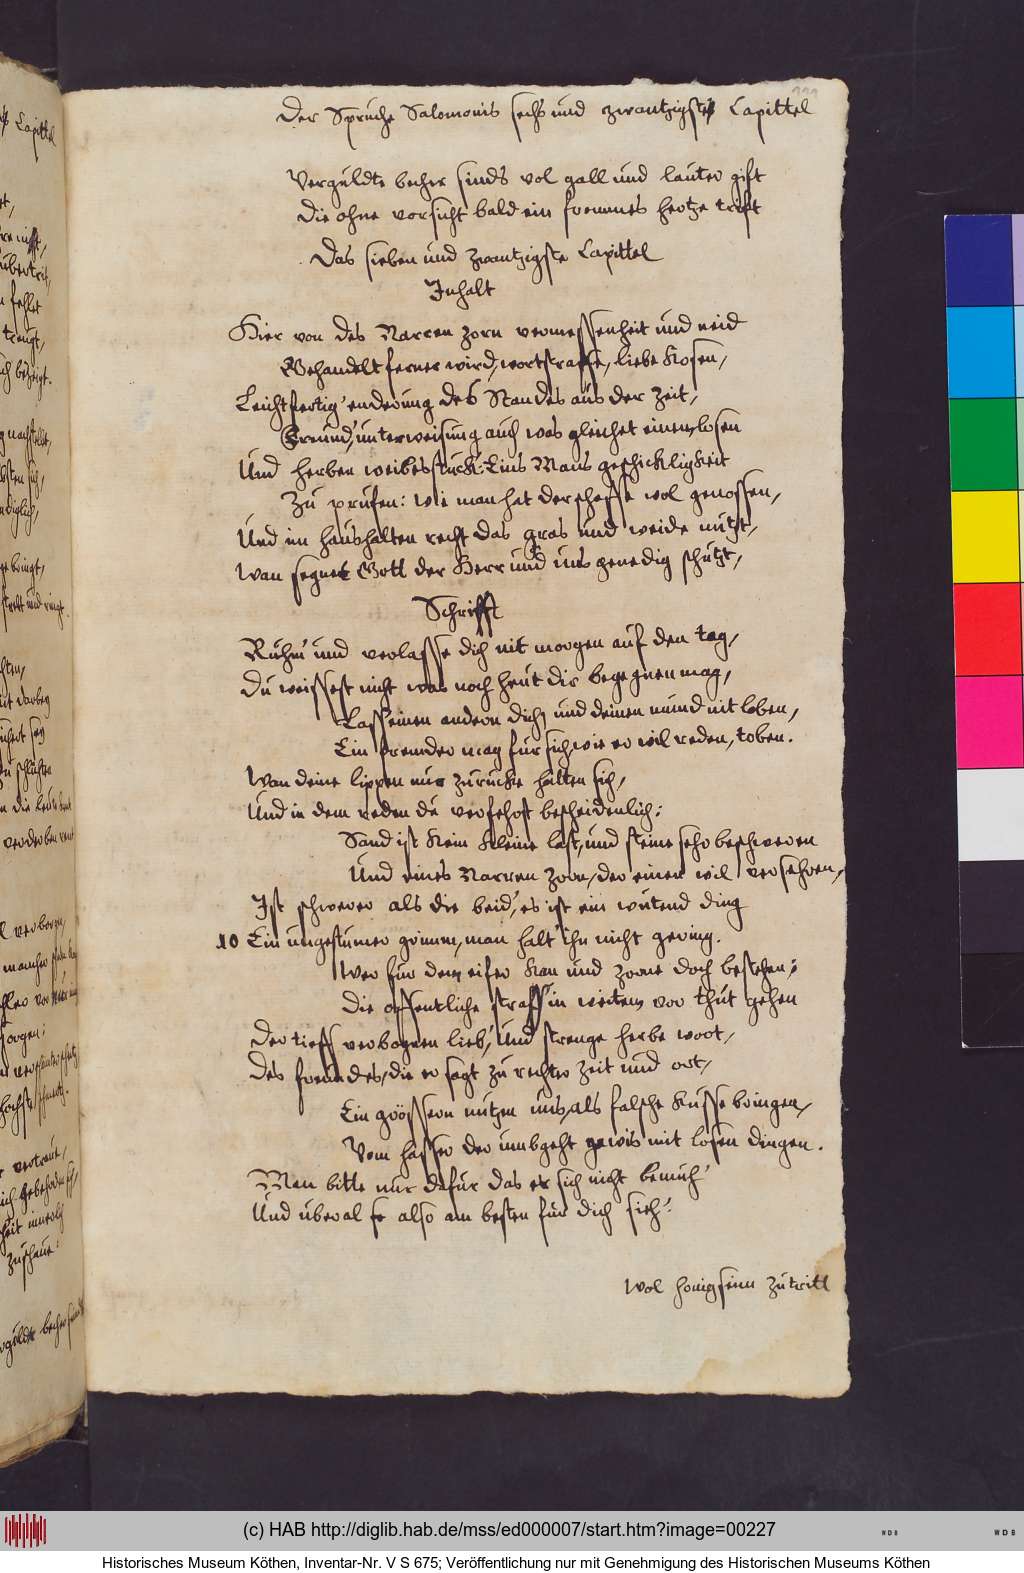 Der Sprüche Salomonis sechs und zwantzigste Capittel
Vergüldte becher sinds vol gall und lauter gift
Die ohne vorsicht bald ein frommes hertze trifft
Das sieben und zwantzigste Capittel
Inhalt
Hier von des Narren zorn vermessenheit und neid
Gehandelt ferner wird, wortstraffe, liebe kosen,
Leichtfertig' enderung des Standes aus der zeit,
Freund, unterweisung auch was gleichet einem losen
Und herben weibesstück: Eins Mans geschickligkeit
Zu prüfen: wie man hat der schaffe wol genossen,
Und im haushalten recht das gras und weide nützt,
Wan segnet Gott der Herr und uns genedig schützt,
Schrifft
Rühm' und verlasse dich nit morgen auf den tag,
Du weissest nicht was noch heut dir begegnen mag,
Lass einen andern dich, und deinen mund nit loben,
Ein frembder mag für sich wie er wil reden, toben.
Wan deine lippen nur zurücke halten sich,
Und in dem reden du verfehrst bescheidenlich:
Sand ist kein kleine last, und steine sehr beschweren
Und eines Narren zorn, der einen wil versehren,
Ist schwerer als die beid', es ist ein wütend ding
10 Ein ungestümer grimm, man halt' ihn nicht gering.
Wer für dem eifer kan und zorne doch bestehen:
Die offentliche straff' in weitem vor thut gehen
Der tieff verborgnen lieb', Und strenge herbe wort,
Des freundes, die er sagt zu rechter zeit und ort,
Ein grössern nutzen uns, als falsche küsse bringen,
Vom hasser der umbgeht gewis mit losen dingen.
Man bitte nur dafür das er sich nicht bemüh'
Und überal so also am besten für dich sieh:
Wol honigseim zutritt
(c) HAB http://diglib.hab.de/mss/ed000007/start.htm?image=00227
WDB
WDB
Historisches Museum Köthen, Inventar-Nr. V S 675; Veröffentlichung nur mit Genehmigung des Historischen Museums Köthen